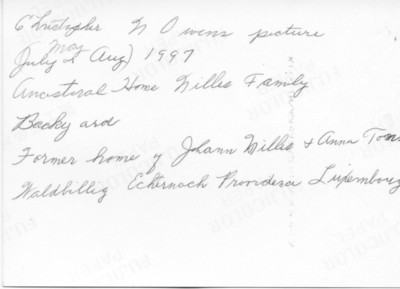 Christopher N Owens picture
May
(July & Aug) 1997
Ancestral Home Nilles Family
Backyard
Former home of Johann Nilles & Anna Tom
Waldbillig Echternach Providence Luxembourg
FUJICOLOR
PAPER